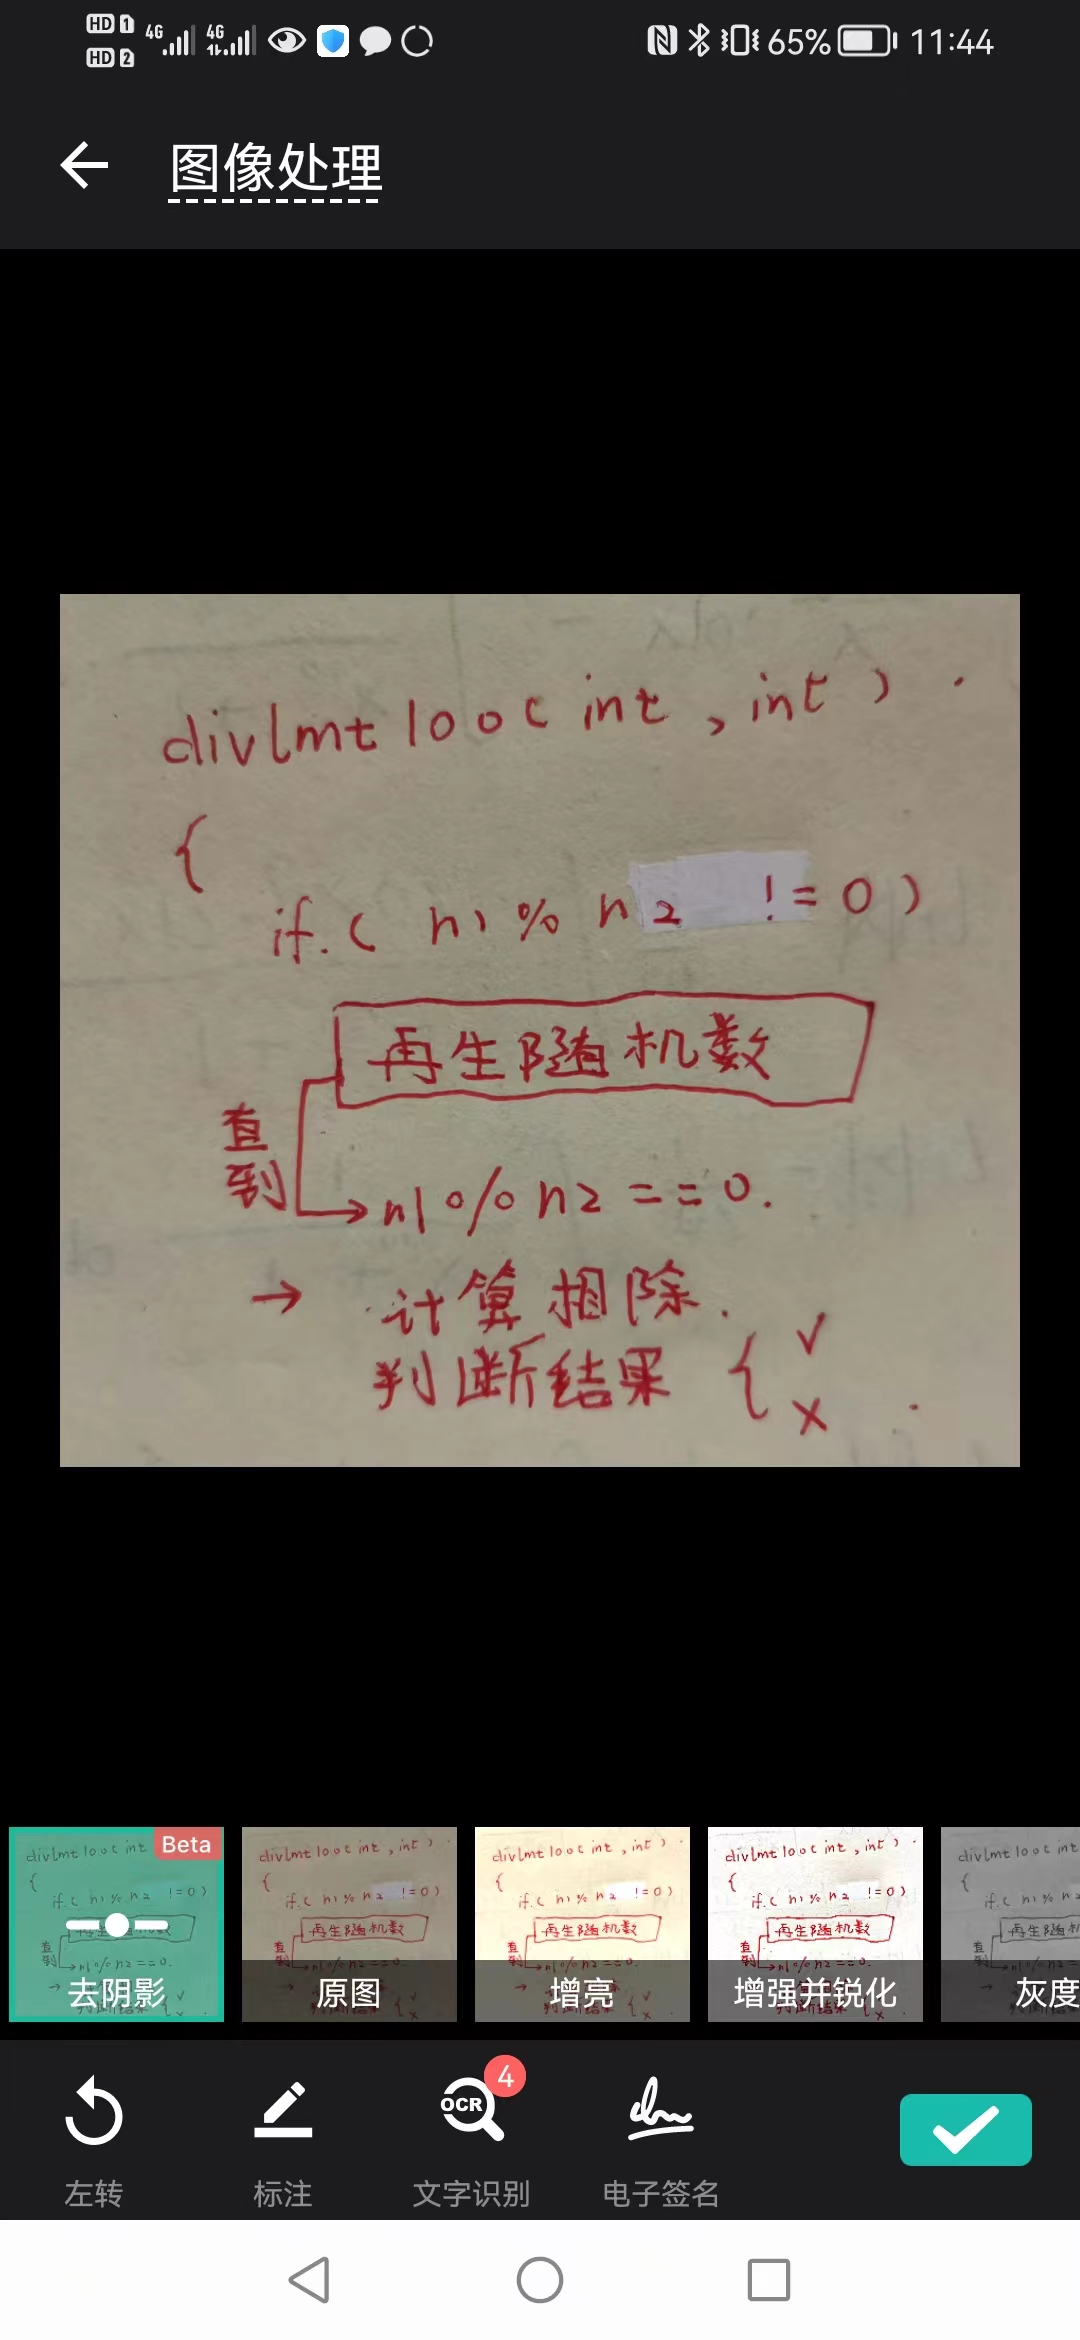 HD 1 4G 4G 65% 11:44
HD 2
图像处理
divlmt 100( int , int ) .
{
if.( n1 % n2 != 0 )
再生随机数
直
到
n1 % n2 == 0.
→ 计算相除.
判断结果 { √
x .
Beta
去阴影 原图 增亮 增强并锐化 灰度
OCR 4
左转 标注 文字识别 电子签名